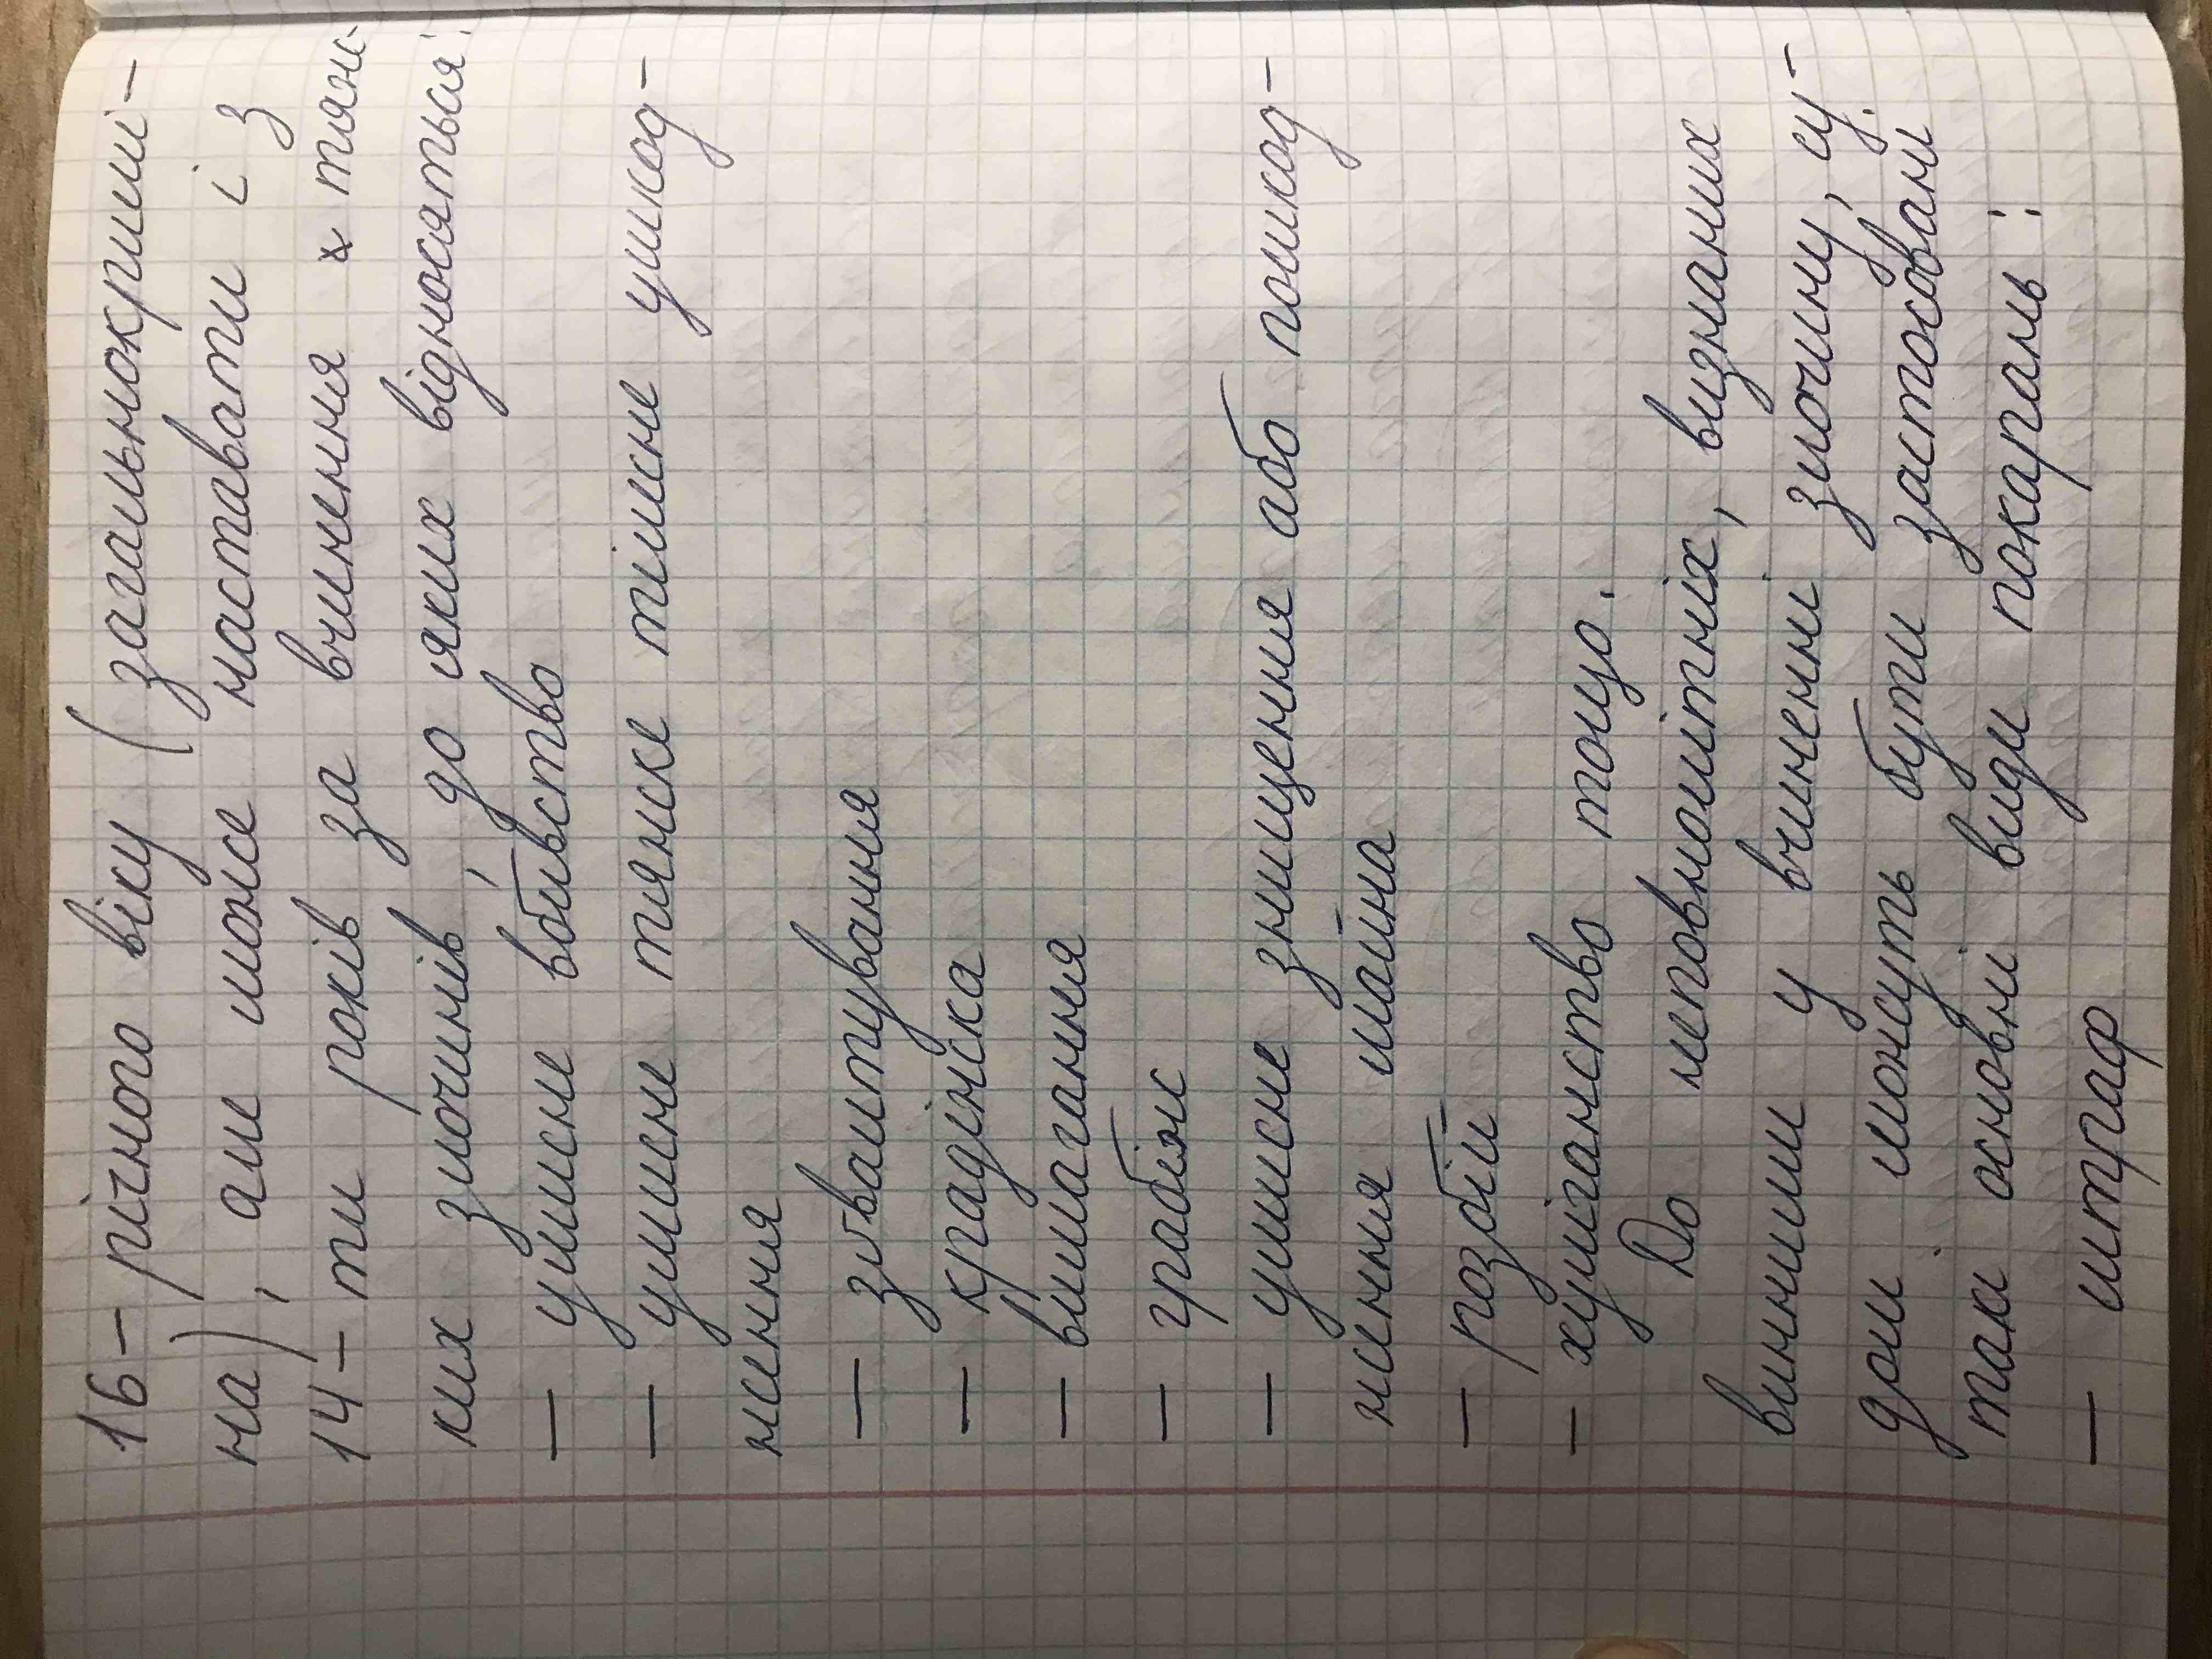 16-річного віку (загальнокримі-
на), але може наставати і з
14-ти років за вчинення х тяж-
ких злочинів, до яких відносяться:
— умисне вбивство
— умисне тяжке тілесне ушкод-
ження
— зґвалтування
— крадіжка
— вимагання
— грабіж
— умисне знищення або пошкод-
ження майна
— розбій
— хуліганство тощо.
До неповнолітніх, визнаних
винними у вчиненні злочину, су-
дом можуть бути застосовані
такі основні види покарань:
— штраф